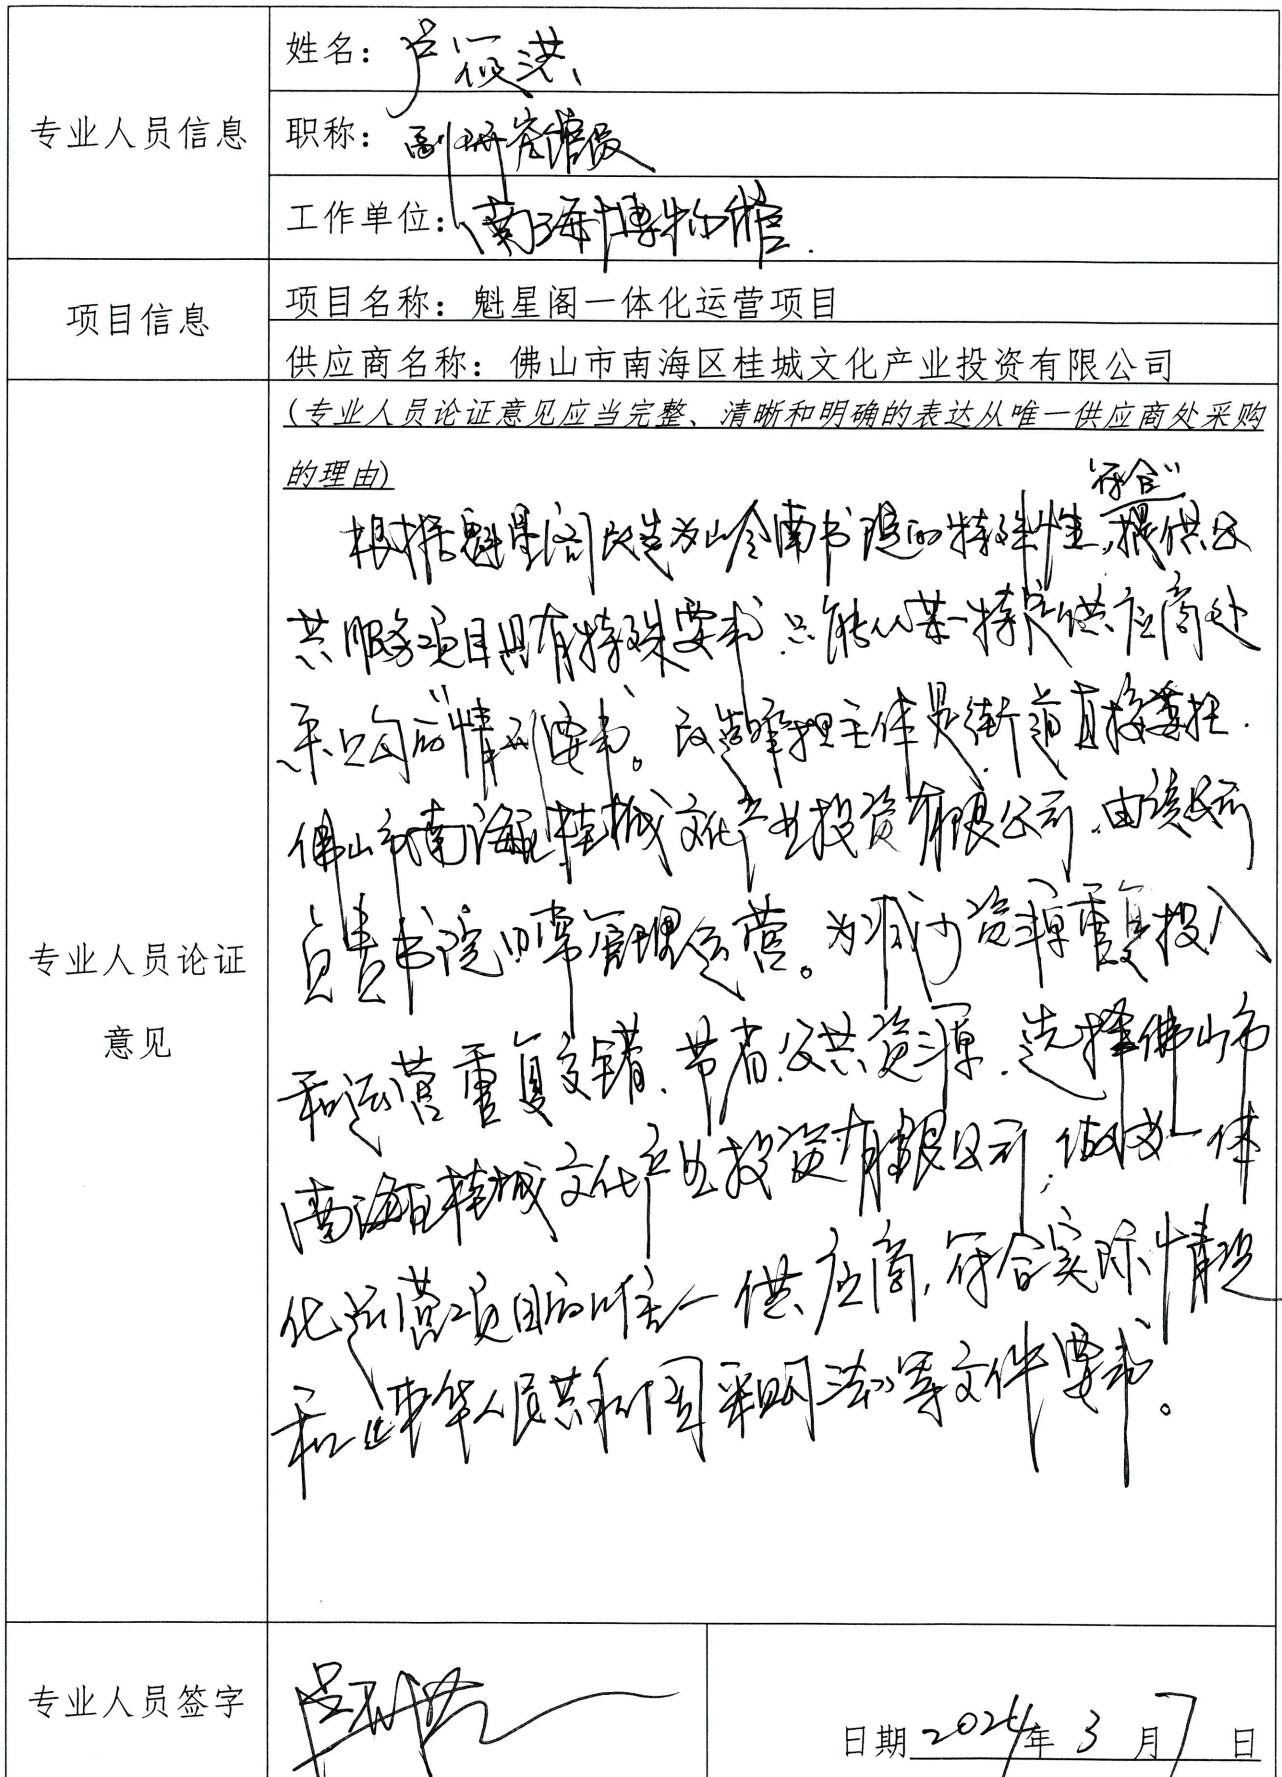 专业人员信息
姓名：卢筱洪
职称：副研究馆员
工作单位：南海博物馆.
项目信息
项目名称：魁星阁一体化运营项目
供应商名称：佛山市南海区桂城文化产业投资有限公司
专业人员论证
意见
(专业人员论证意见应当完整、清晰和明确的表达从唯一供应商处采购
的理由)
"符合"
根据魁星阁改造为岭南书院的特殊性，提供公
共服务项目具有特殊要求，只能从某一特定供应商处
采购的"情形要求。改造承担主体是街道直接委托
佛山市南海区桂城文化产业投资有限公司，由该公司
负责书院日常管理运营。为减少资源重复投入
和运营重复交错，节省公共资源，选择佛山市
南海区桂城文化产业投资有限公司，做为一体
化运营项目的唯一供应商，符合实际情况
和《中华人民共和国采购法》等文件要求。
专业人员签字
日期2024年3月7日